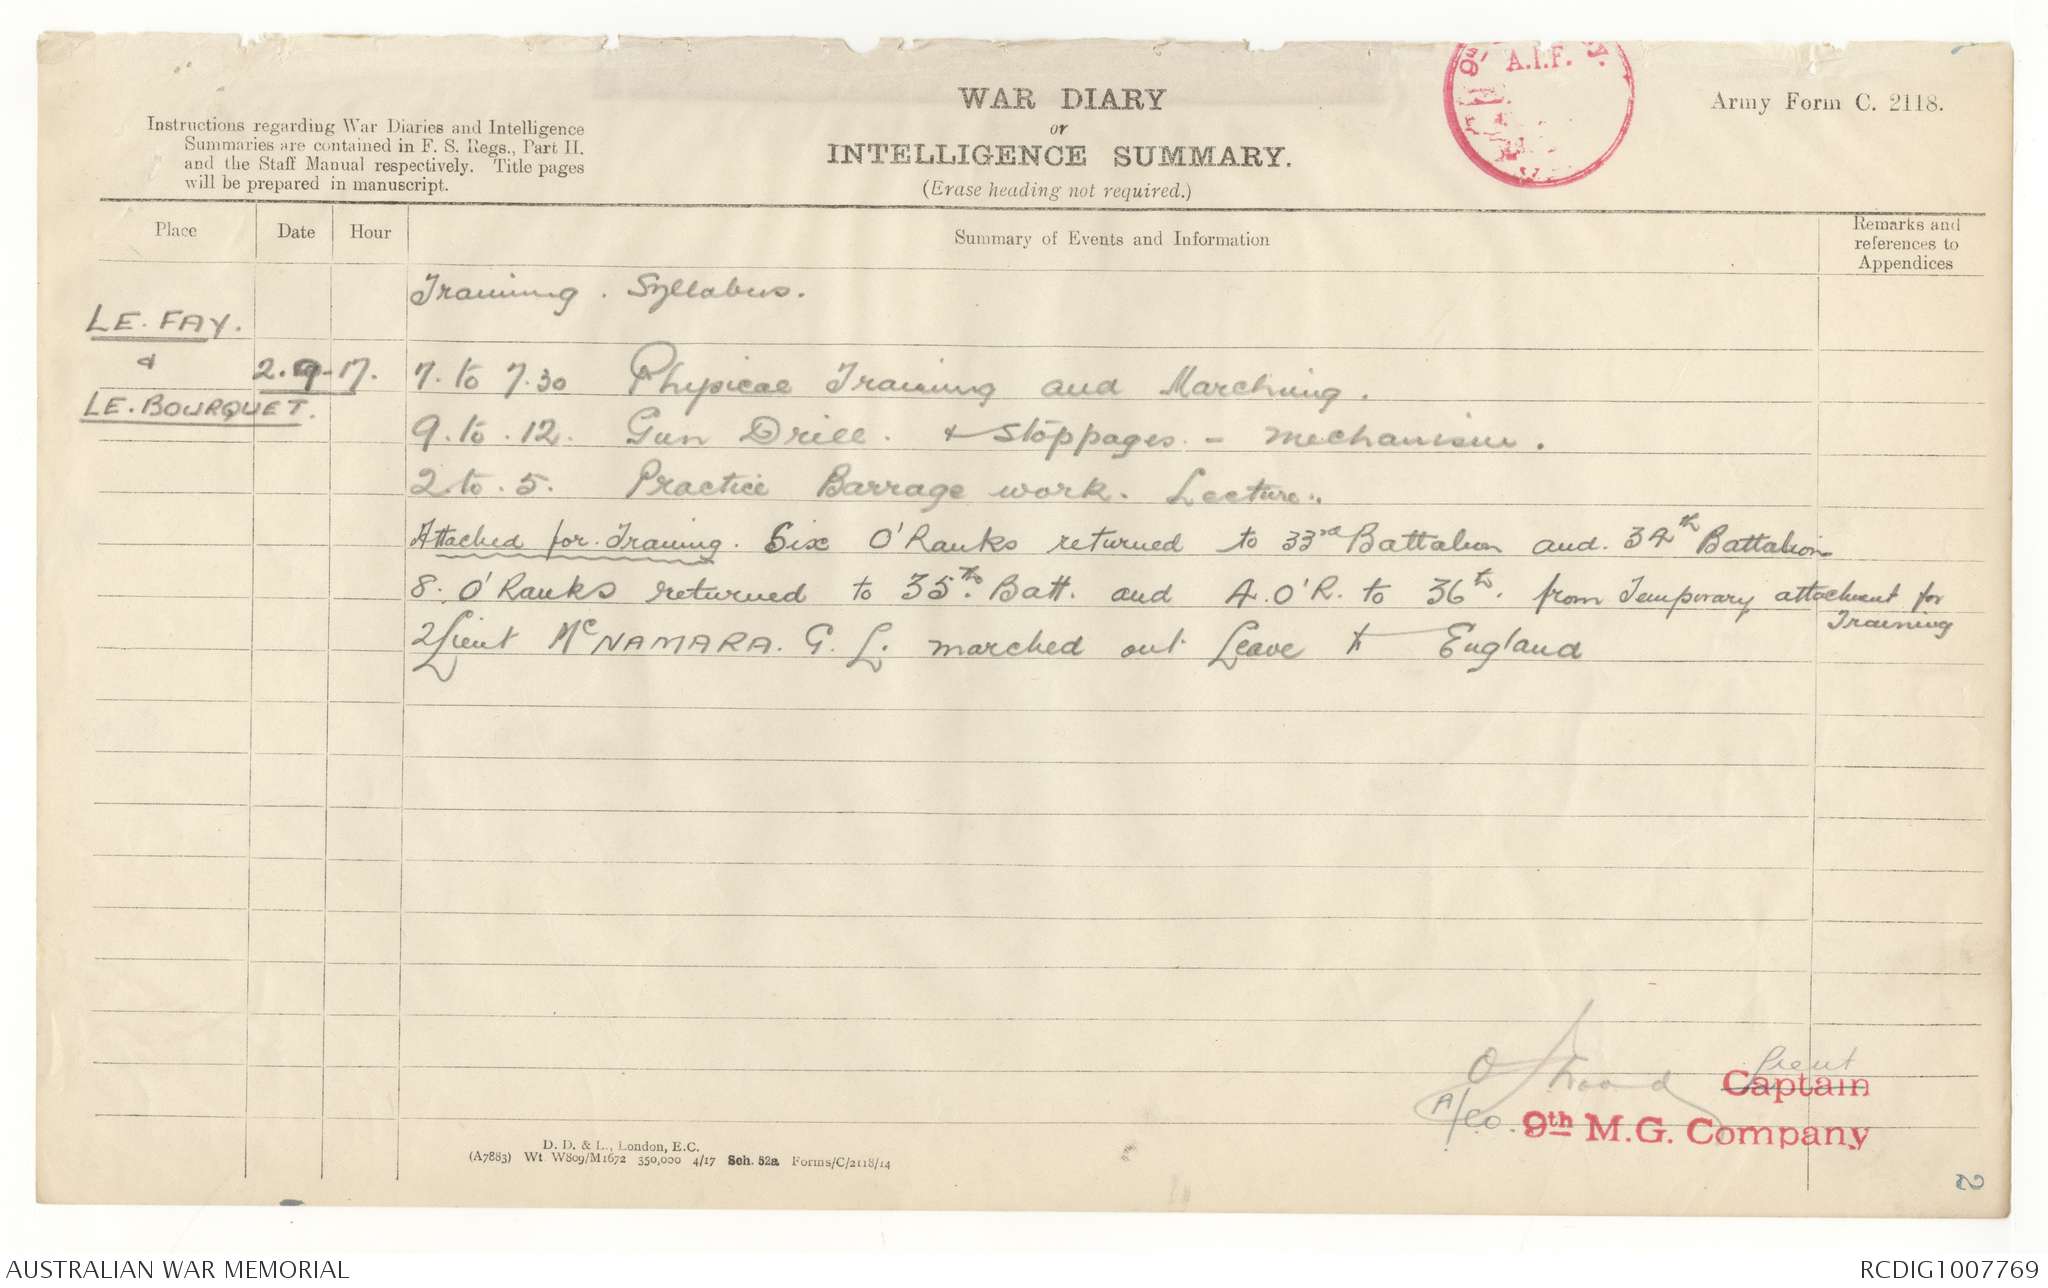 WAR DIARY
or
INTELLIGENCE SUMMARY.
(Erase heading not required.)
Army Form C. 2118.
Instructions regarding War Diaries and Intelligence
Summaries are contained in F. S. Regs., Part II.
and the Staff Manual respectively. Title pages
will be prepared in manuscript.
A.I.F.
Place
Date
Hour
Summary of Events and Information
Remarks and
references to
Appendices
Training . Syllabus.
LE. FAY.
&
LE. BOURQUET.
2.9.17.
7. to 7.30 Physical Training and Marching.
9. to .12. Gun Drill. & Stoppages - mechanism.
2 to. 5. Practice Barrage work. Lecture..
Attached for. Training. Six O'Ranks returned to 33rd Battalion and. 34th Battalion
8. O'Ranks returned to 35th. Batt. and 4. O'R. to 36th. from Temporary attachment for
Training
2Lieut McNAMARA. G. L. marched out Leave to England
Lieut
Captain
A/Co.
9th M.G. Company
D. D. & L., London, E.C.
(A7883) Wt W809/M1672 350,000 4/17 Sch. 52a Forms/C/2118/14
2
AUSTRALIAN WAR MEMORIAL
RCDIG1007769